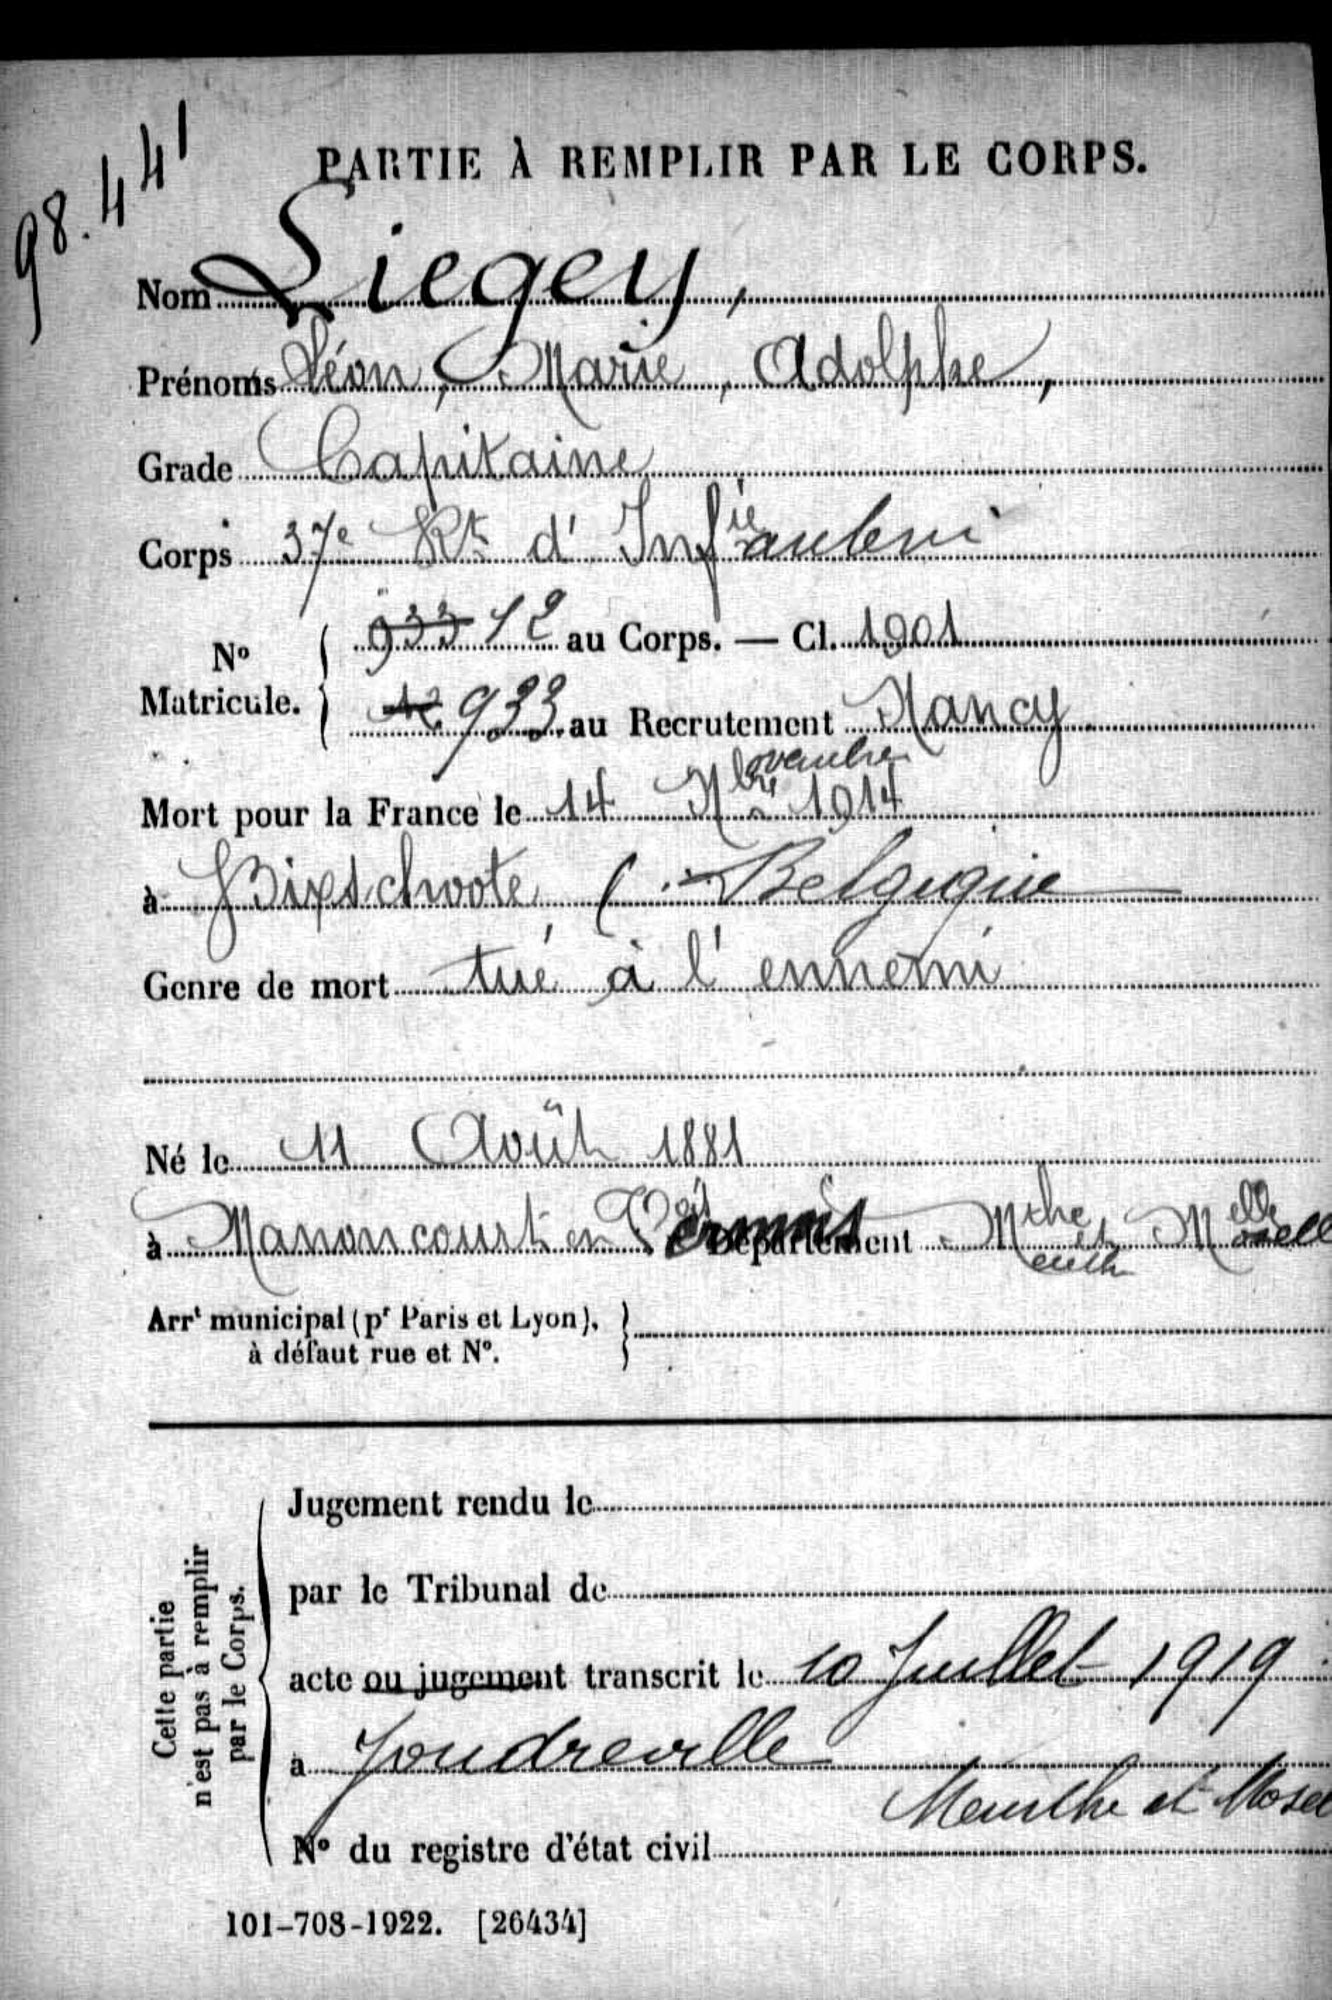 98.441
PARTIE À REMPLIR PAR LE CORPS.
Nom Liegey,
Prénoms Léon, Marie, Adolphe,
Grade Capitaine
Corps 37e Rt d'Infie anterie
No Matricule. { 933 12 au Corps. — Cl. 1901
12 933 au Recrutement Nancy
Mort pour la France le 14 Nbre ovembre 1914
à Bixschoote, ( Belgique
Genre de mort tué à l'ennemi
Né le 11 Août 1881
à Manoncourt en Vermois Département Mthe eurthe et Melle oselle
Arrt municipal (pr Paris et Lyon), }
à défaut rue et No.
Cette partie
n'est pas à remplir
par le Corps.
Jugement rendu le
par le Tribunal de
acte ou jugement transcrit le 10 Juillet 1919
à Joudreville
Meurthe et Mosel
No du registre d'état civil
101-708-1922. [26434]